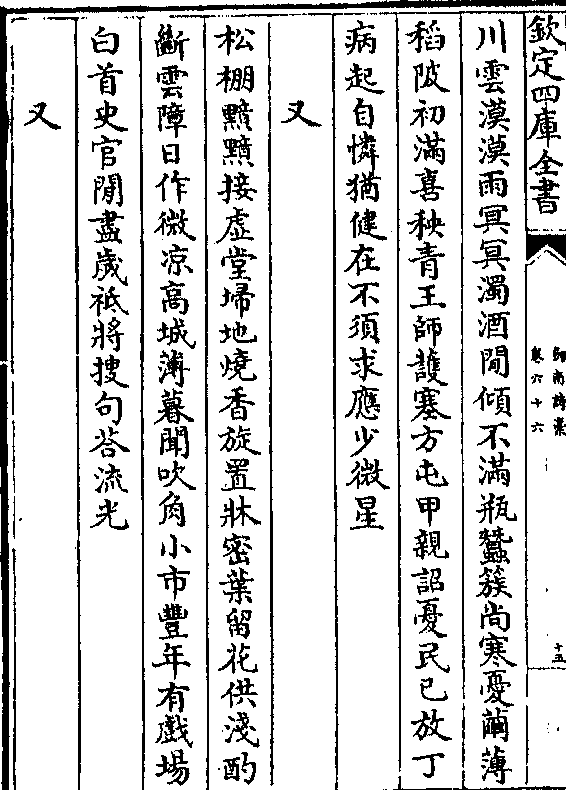 欽定四庫全書
劒南詩藁
卷六十六
十五
川雲漠漠雨冥冥濁酒閒傾不滿瓶蠶簇尚寒憂繭薄
稻陂初滿喜秧青王師護塞方屯甲親詔憂民已放丁
病起自憐猶健在不須求應少微星
又
松棚黯黯接虛堂埽地燒香旋置牀密葉留花供淺酌
斷雲障日作微凉高城薄暮聞吹角小市豐年有戲場
白首史官閒盡歲祗將搜句荅流光
又